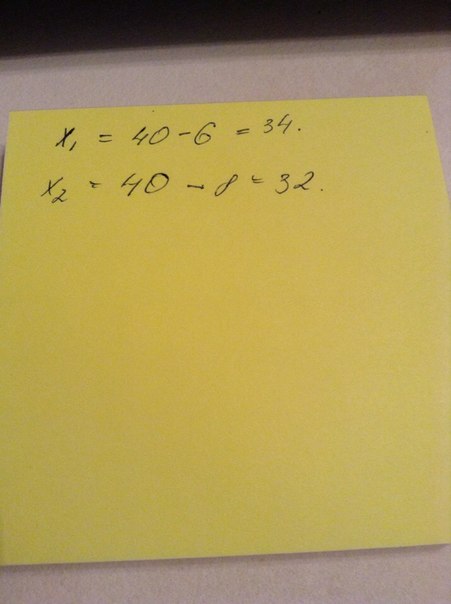 x₁ = 40 - 6 = 34.
x₂ = 40 - 8 = 32.